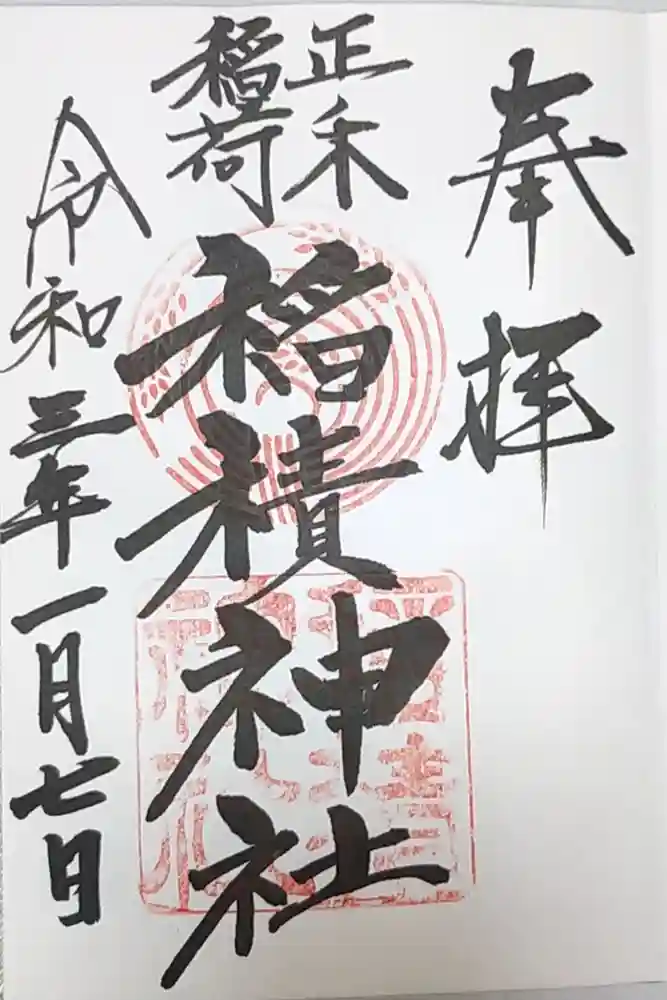 奉拝
正木
稲荷
稲積神社
令和三年一月七日